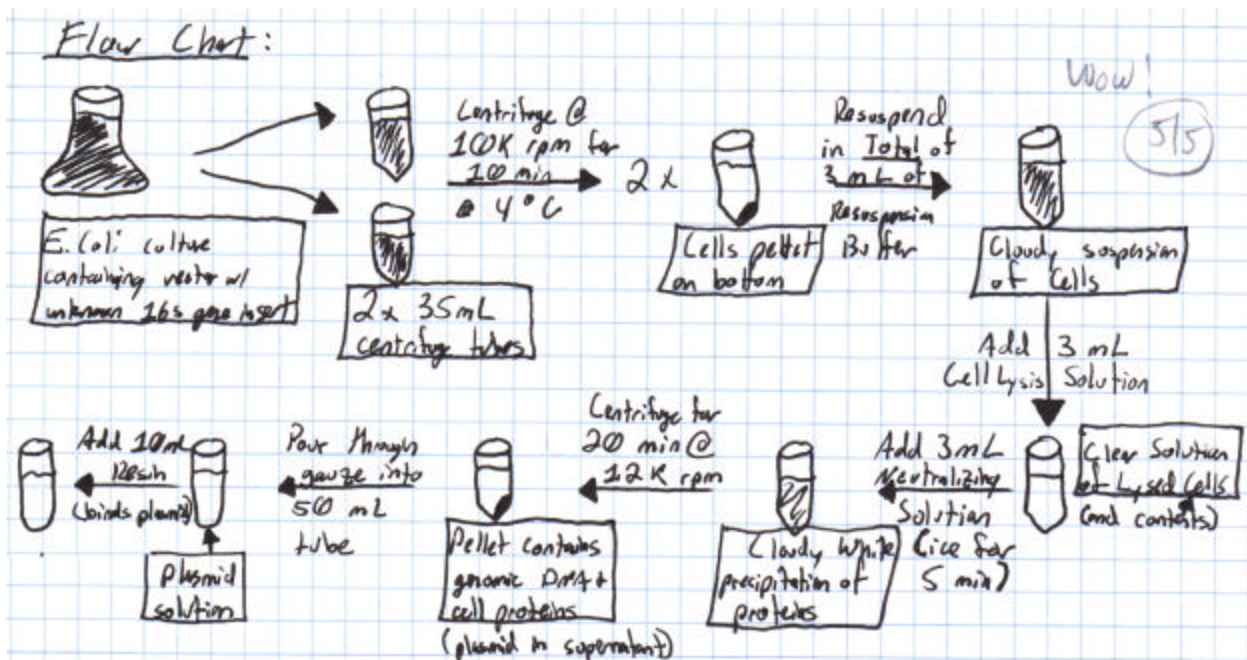 Flow Chart:
Wow!
5/5
E. Coli culture
containing vector w/
unknown 16s gene insert
2x 35mL
centrifuge tubes
Centrifuge @
10K rpm for
10 min
@ 4°C
2x
Cells pellet
on bottom
Resuspend
in Total of
3 mL of
Resuspension
Buffer
Cloudy suspension
of Cells
Add 3 mL
Cell Lysis Solution
Clear Solution
of Lysed Cells
(and contents)
Add 3mL
Neutralizing
Solution
(ice for
5 min)
Cloudy White
precipitation of
proteins
Centrifuge for
20 min @
12K rpm
Pellet contains
genomic DNA &
cell proteins
(plasmid in supernatant)
Pour through
gauze into
50 mL
tube
Plasmid
solution
Add 10mL
Resin
(binds plasmid)